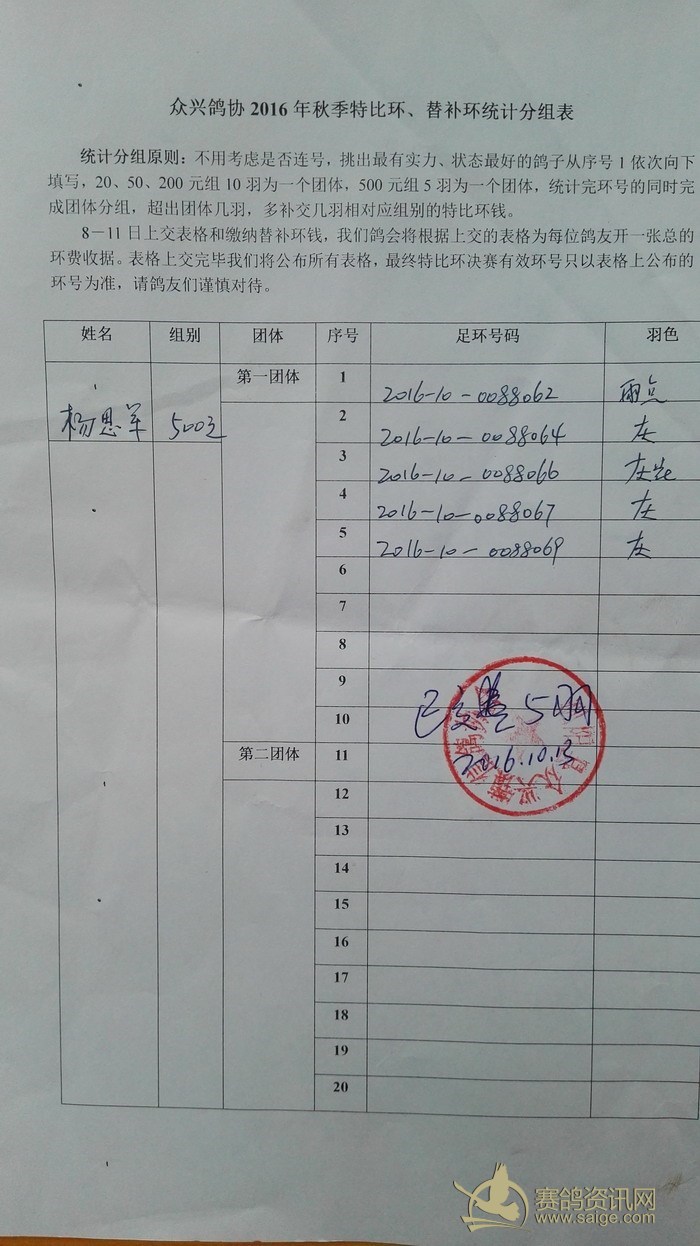 众兴鸽协2016年秋季特比环、替补环统计分组表
统计分组原则：不用考虑是否连号，挑出最有实力、状态最好的鸽子从序号1依次向下
填写，20、50、200元组10羽为一个团体，500元组5羽为一个团体，统计完环号的同时完
成团体分组，超出团体几羽，多补交几羽相对应组别的特比环钱。
8－11日上交表格和缴纳替补环钱，我们鸽会将根据上交的表格为每位鸽友开一张总的
环费收据。表格上交完毕我们将公布所有表格，最终特比环决赛有效环号只以表格上公布的
环号为准，请鸽友们谨慎对待。
姓名 组别 团体 序号 足环号码 羽色
第一团体 1 2016-10-0088062 雨点
杨恩军 500元 2 2016-10-0088064 灰
3 2016-10-0088066 灰花
4 2016-10-0088067 灰
5 2016-10-0088069 灰
6
7
8
9 已交 5羽
10
第二团体 11 2016.10.13
12
13
14
15
16
17
18
19
20
赛鸽资讯网
www.saige.com